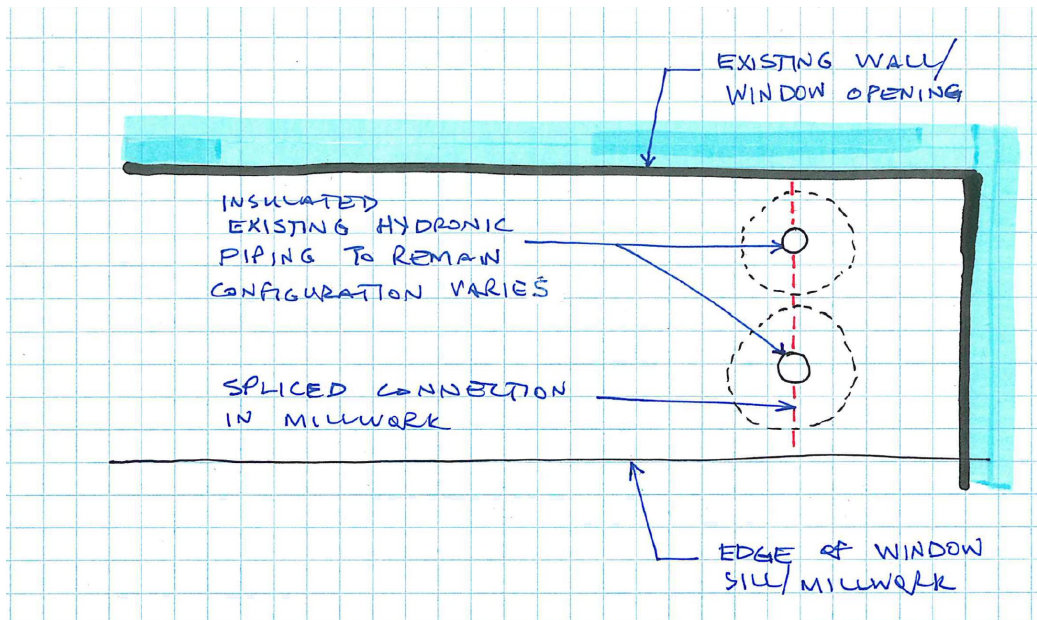 EXISTING WALL/
WINDOW OPENING
INSULATED
EXISTING HYDRONIC
PIPING TO REMAIN
CONFIGURATION VARIES
SPLICED CONNECTION
IN MILLWORK
EDGE OF WINDOW
SILL/MILLWORK